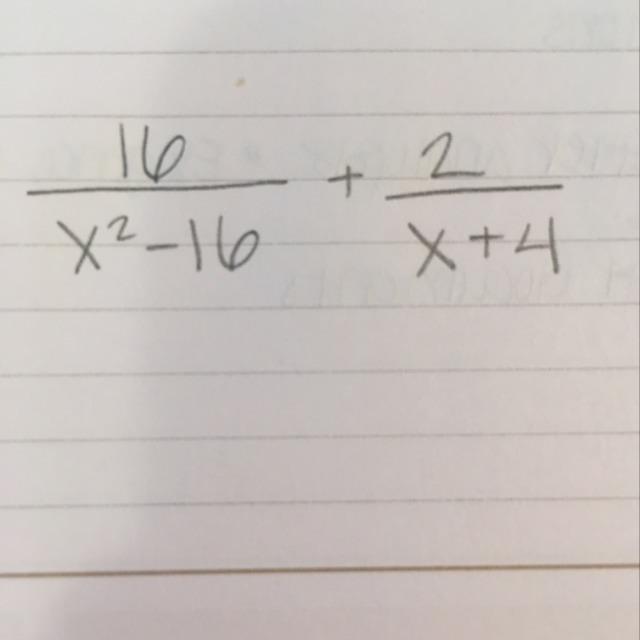 16/(x²-16) + 2/(x+4)